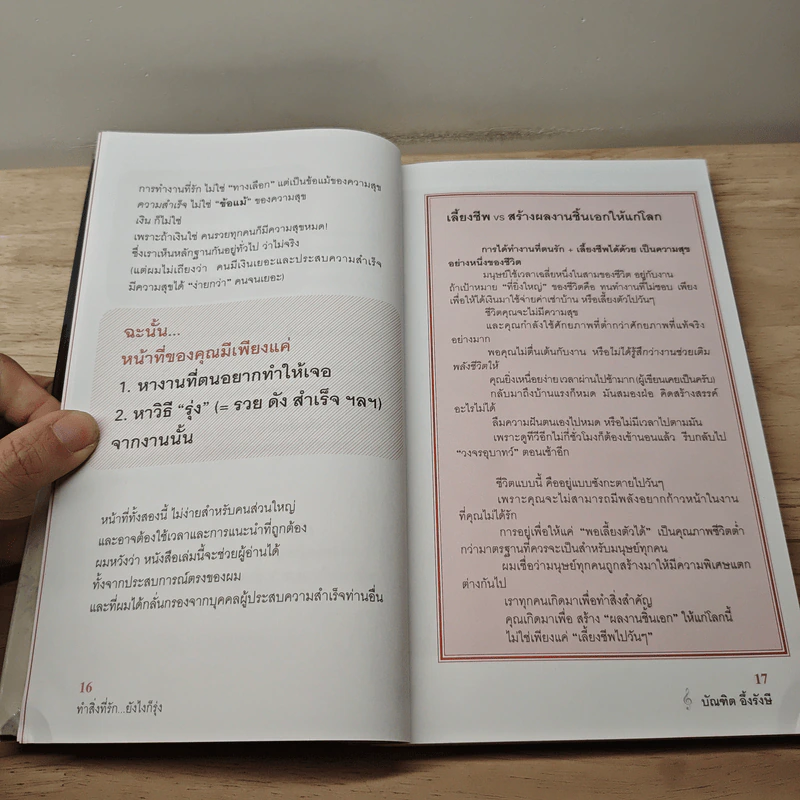 การทำงานที่รัก ไม่ใช่ "ทางเลือก" แต่เป็นข้อแม้ของความสุข
ความสำเร็จ ไม่ใช่ "ข้อแม้" ของความสุข
เงิน ก็ไม่ใช่
เพราะถ้าเงินใช่ คนรวยทุกคนก็มีความสุขหมด!
ซึ่งเราเห็นหลักฐานกันอยู่ทั่วไป ว่าไม่จริง
(แต่ผมไม่เถียงว่า คนมีเงินเยอะและประสบความสำเร็จ
มีความสุขได้ "ง่ายกว่า" คนจนเยอะ)
ฉะนั้น...
หน้าที่ของคุณมีเพียงแค่
1. หางานที่ตนอยากทำให้เจอ
2. หาวิธี "รุ่ง" (= รวย ดัง สำเร็จ ฯลฯ)
จากงานนั้น
หน้าที่ทั้งสองนี้ ไม่ง่ายสำหรับคนส่วนใหญ่
และอาจต้องใช้เวลาและการแนะนำที่ถูกต้อง
ผมหวังว่า หนังสือเล่มนี้จะช่วยผู้อ่านได้
ทั้งจากประสบการณ์ตรงของผม
และที่ผมได้กลั่นกรองจากบุคคลผู้ประสบความสำเร็จท่านอื่น
16
ทำสิ่งที่รัก...ยังไงก็รุ่ง
เลี้ยงชีพ vs สร้างผลงานชิ้นเอกให้แก่โลก
การได้ทำงานที่ตนรัก + เลี้ยงชีพได้ด้วย เป็นความสุข
อย่างหนึ่งของชีวิต
มนุษย์ใช้เวลาเฉลี่ยหนึ่งในสามของชีวิต อยู่กับงาน
ถ้าเป้าหมาย "ที่ยิ่งใหญ่" ของชีวิตคือ ทนทำงานที่ไม่ชอบ เพียง
เพื่อให้ได้เงินมาใช้จ่ายค่าเช่าบ้าน หรือเลี้ยงตัวไปวันๆ
ชีวิตคุณจะไม่มีความสุข
และคุณกำลังใช้ศักยภาพที่ต่ำกว่าศักยภาพที่แท้จริง
อย่างมาก
พอคุณไม่ตื่นเต้นกับงาน หรือไม่ได้รู้สึกว่างานช่วยเติม
พลังชีวิตให้
คุณยิ่งเหนื่อยง่ายเวลาผ่านไปช้ามาก (ผู้เขียนเคยเป็นครับ)
กลับมาถึงบ้านแรงก็หมด มันสมองฝ่อ คิดสร้างสรรค์
อะไรไม่ได้
ลืมความฝันตนเองไปหมด หรือไม่มีเวลาไปตามมัน
เพราะดูทีวีอีกไม่กี่ชั่วโมงก็ต้องเข้านอนแล้ว รีบกลับไป
"วงจรอุบาทว์" ตอนเช้าอีก
ชีวิตแบบนี้ คืออยู่แบบซังกะตายไปวันๆ
เพราะคุณจะไม่สามารถมีพลังอยากก้าวหน้าในงาน
ที่คุณไม่ได้รัก
การอยู่เพื่อให้แค่ "พอเลี้ยงตัวได้" เป็นคุณภาพชีวิตต่ำ
กว่ามาตรฐานที่ควรจะเป็นสำหรับมนุษย์ทุกคน
ผมเชื่อว่ามนุษย์ทุกคนถูกสร้างมาให้มีความพิเศษแตก
ต่างกันไป
เราทุกคนเกิดมาเพื่อทำสิ่งสำคัญ
คุณเกิดมาเพื่อ สร้าง "ผลงานชิ้นเอก" ให้แก่โลกนี้
ไม่ใช่เพียงแค่ "เลี้ยงชีพไปวันๆ"
17
บัณฑิต อึ้งรังษี